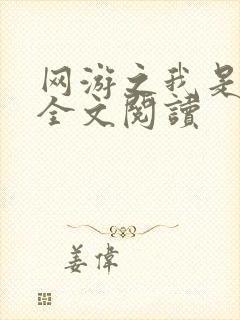 网游之我是
全文閱讀
姜偉